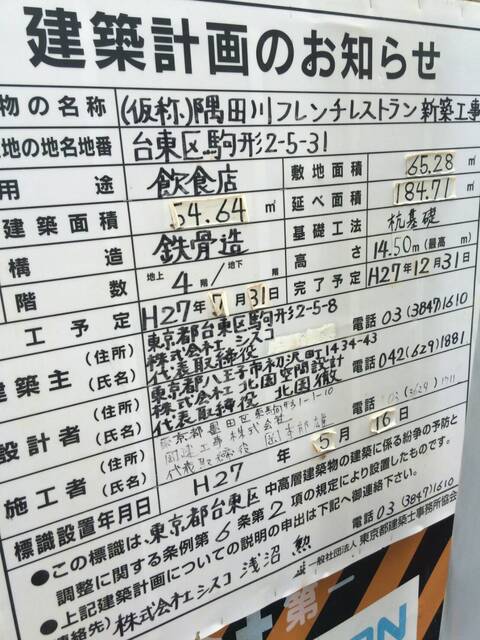 建築計画のお知らせ
物の名称 (仮称)隅田川フレンチレストラン新築工事
地の地名地番 台東区駒形2-5-31
用途 飲食店 敷地面積 65.28㎡
建築面積 54.64㎡ 延べ面積 184.71㎡
構造 鉄骨造 基礎工法 杭基礎
階数 地上4階/地下 階 高さ 14.50m(最高 m)
工予定 H27年 月31日 完了予定 H27年12月31日
建築主 (住所) 東京都台東区駒形2-5-8
(氏名) 株式会社シスコ 電話03(3847)1610
代表取締役
設計者 (住所) 東京都八王子市初沢町1434-43
(氏名) 株式会社 北国空間設計 電話042(629)1881
代表取締役 北国徹
施工者 (住所) 東京都墨田区 1-1-10
(氏名) 建工事株式会社 電話
代表取締役
標識設置年月日 H27年5月16日
●この標識は、東京都台東区中高層建築物の建築に係る紛争の予防と
調整に関する条例第6条第2項の規定により設置したものです。
●上記建築計画についての説明の申出は下記へ御連絡下さい。
連絡先) 株式会社シスコ 浅沼 勲 03(3847)1610
一般社団法人 東京都建築士事務所協会
第一